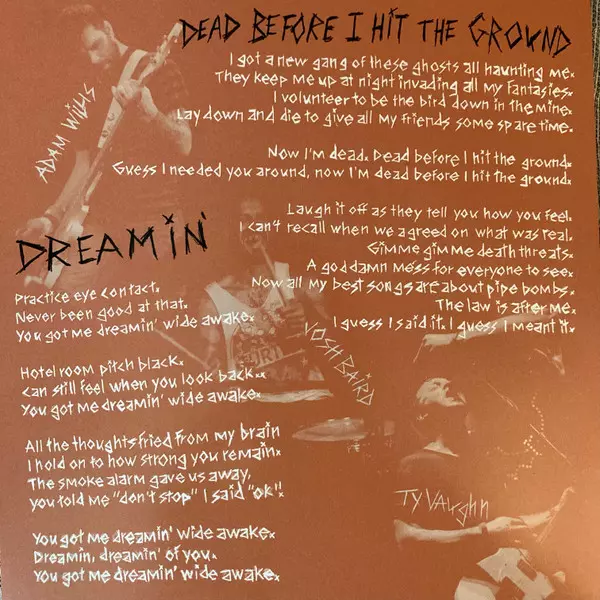 DEAD BEFORE I HIT THE GROUND
I got a new gang of these ghosts all haunting me.
They keep me up at night invading all my fantasies.
I volunteer to be the bird down in the mine.
Lay down and die to give all my friends some spare time.
Now I'm dead. Dead before I hit the ground.
Guess I needed you around, now I'm dead before I hit the ground.
Laugh it off as they tell you how you feel.
I can't recall when we agreed on what was real.
Gimme gimme death threats.
A goddamn mess for everyone to see.
Now all my best songs are about pipe bombs.
The law is after me.
I guess I said it. I guess I meant it.
ADAM WILLS
DREAMIN'
Practice eye contact.
Never been good at that.
You got me dreamin' wide awake.
Hotel room pitch black.
Can still feel when you look back..
You got me dreamin' wide awake.
All the thoughts fried from my brain
I hold on to how strong you remain.
The smoke alarm gave us away,
you told me "don't stop" I said "ok".
You got me dreamin' wide awake.
Dreamin, dreamin' of you.
You got me dreamin' wide awake.
YOSH BAIRD
TY VAUGHN